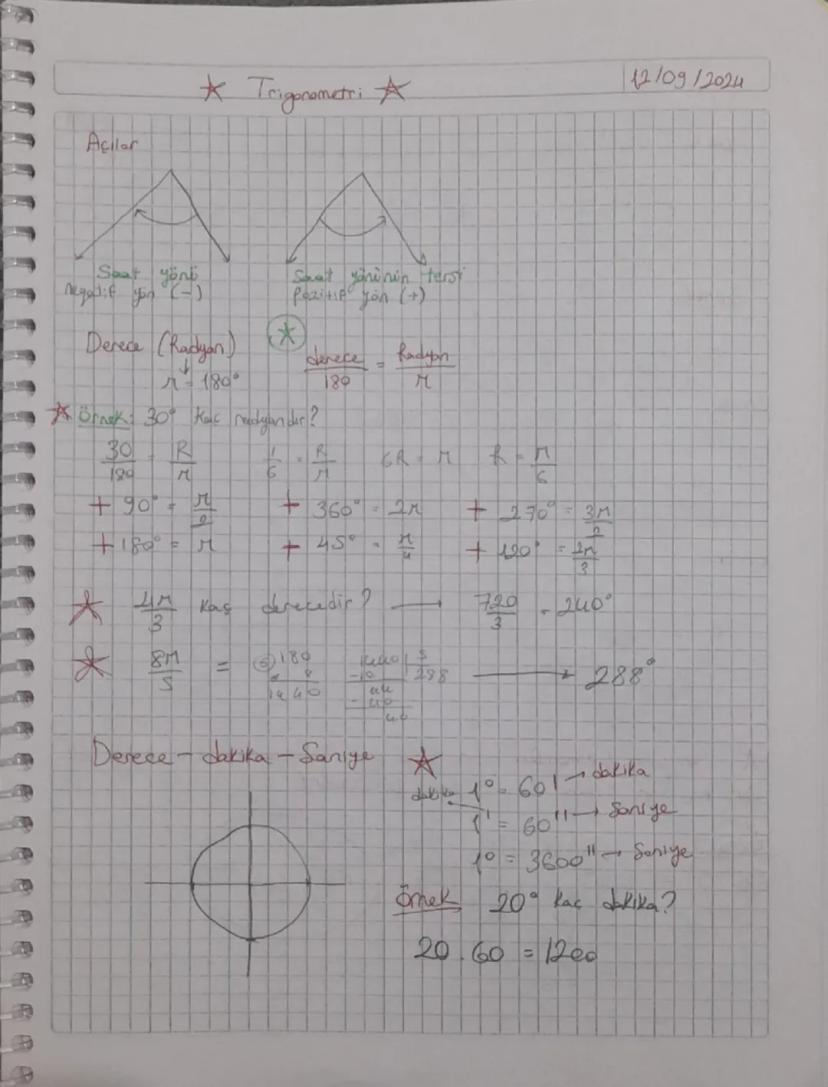 ☆ Trigonometri ☆
12/09/2024
Açılar
Saat yönü
negatif yön (-)
Saat yönünün tersi
pozitif yön (+)
Derece (Radyan)
π = 180°
derece/180 = Radyan/π
☆ Örnek: 30° kaç radyandır?
30/180 = R/π 1/6 = R/π 6R = π R = π/6
+ 90° = π/2 + 360° = 2π + 270° = 3π/2
+ 180° = π + 45° = π/4 + 120° = 2π/3
☆ 4π/3 kaç derecedir? → 720/3 = 240°
☆ 8π/5 = 180 → 288°
8
1440
1440 5
-10 288
44
-40
40
Derece - dakika - Saniye ☆
1° = 60' → dakika
dakika 1' = 60'' → Saniye
1° = 3600'' → Saniye
Örnek 20° kaç dakika?
20 . 60 = 1200